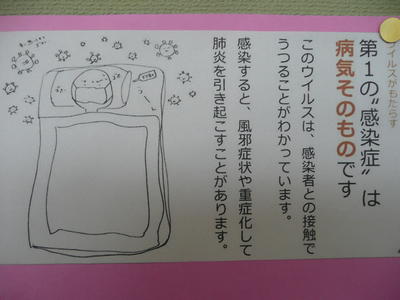 イルスがもたらす
第1の“感染症”は
病気そのものです
このウイルスは、感染者との接触で
うつることがわかっています。
感染すると、風邪症状や重症化して
肺炎を引き起こすことがあります。